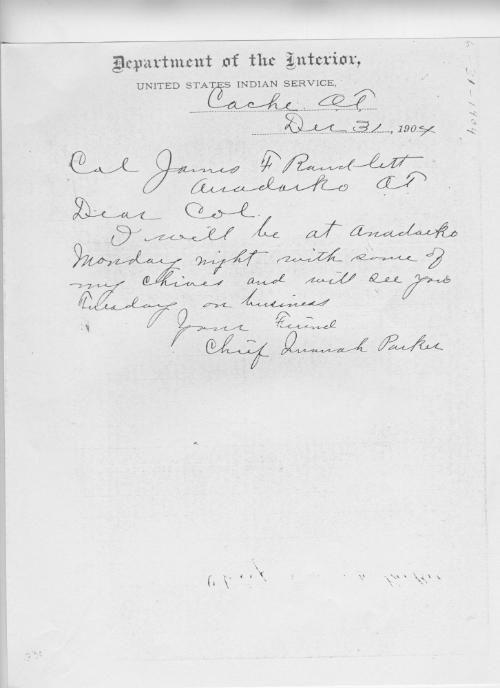 Department of the Interior,
UNITED STATES INDIAN SERVICE,
Cache O.T.
Dec 31, 1904
Col James F Randlett
Anadarko OT
Dear Col.
I will be at Anadarko
Monday night with some of
my chives and will see you
Tuesday on business
Your Friend
Chief Quanah Parker